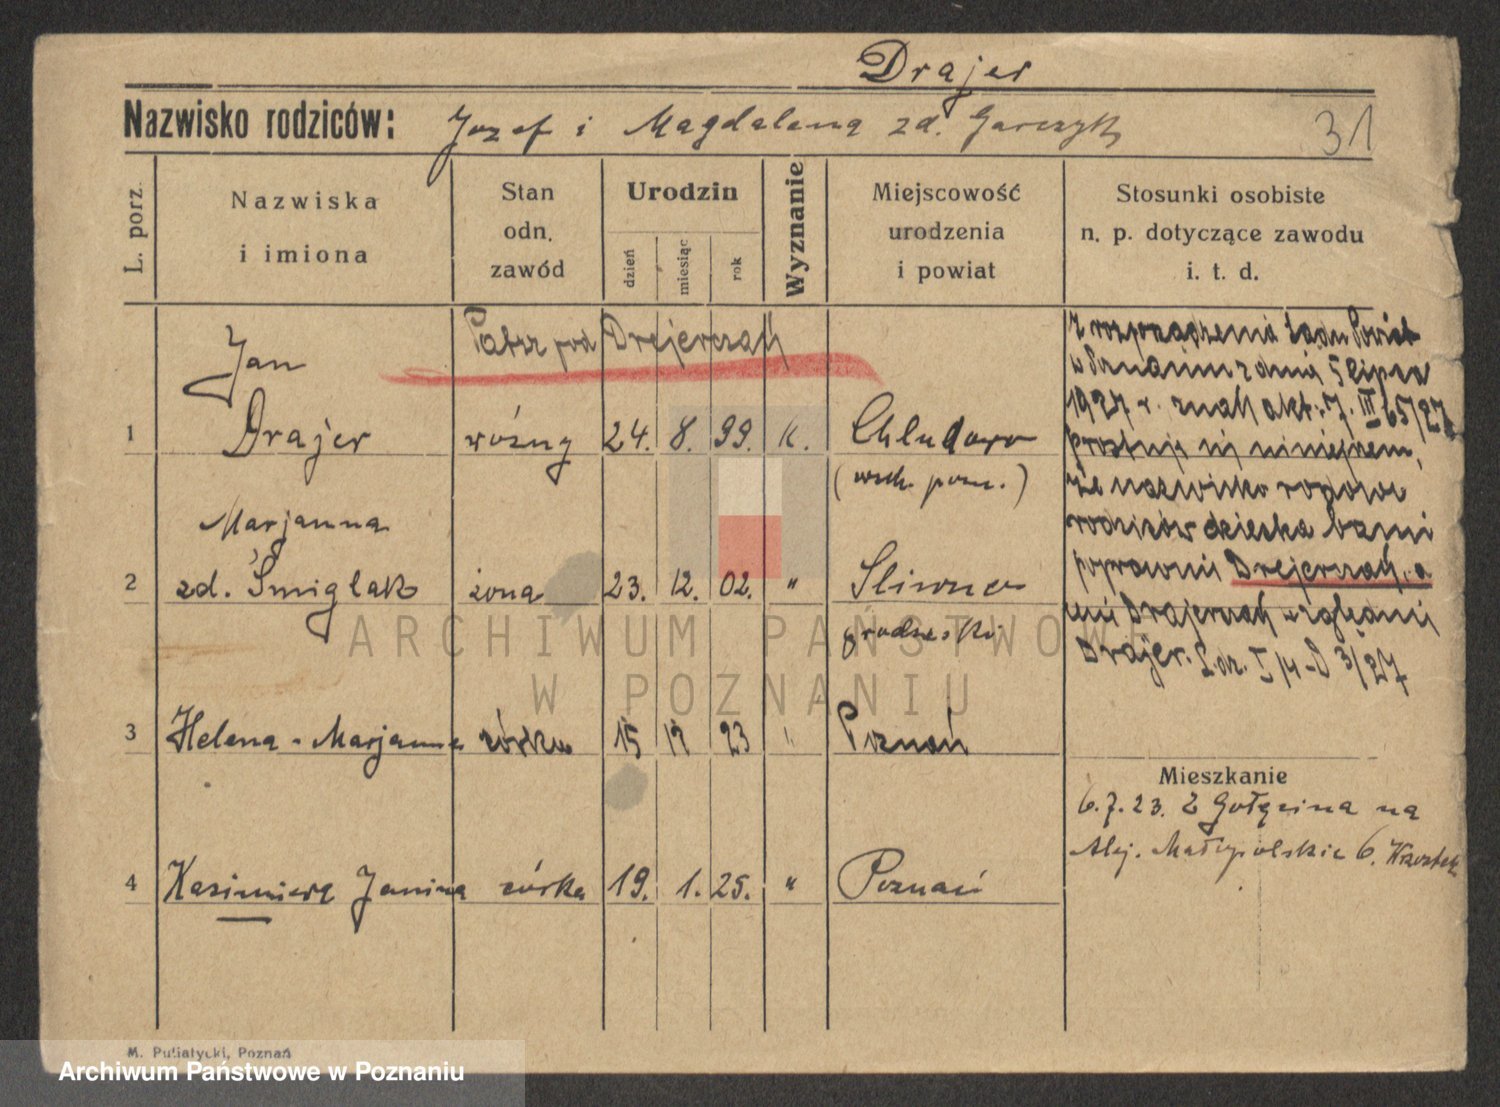 Drajer
Nazwisko rodziców: Jozef i Magdalena zd. Garczyk
31
L. porz.
Nazwiska
i imiona
Stan
odn.
zawód
Urodzin
dzień
miesiąc
rok
Wyznanie
Miejscowość
urodzenia
i powiat
Stosunki osobiste
n. p. dotyczące zawodu
i. t. d.
Patrz pod Drejerczak
1 Jan
Drajer woźny 24. 8. 99. K. Chludowo
(wsch. pozn.)
Marjanna
2 zd. Śmiglak żona 23. 12. 02. " Sliwno
grodzeski
3 Helena - Marjanna córka 15 12 23 " Poznań
4 Kazimiera Janina córka 19. 1. 25. " Poznań
Z rozporządzenia Sądu Powiat
w Poznaniu z dnia 5 lipca
1927 r. znak akt. 7. III 65/27
prostuje się niniejszem,
że nazwisko rodowe
rodziców dziecka brzmi
poprawnie Drejerczak, a
nie Drajerczak względnie
Drajer. L. dz. I/4-D 3/27
Mieszkanie
6.7.23. Z Gołęcina na
Alej. Małopolskie 6.
M. Putiatycki, Poznań
ARCHIWUM PAŃSTWOWE
W POZNANIU
Archiwum Państwowe w Poznaniu